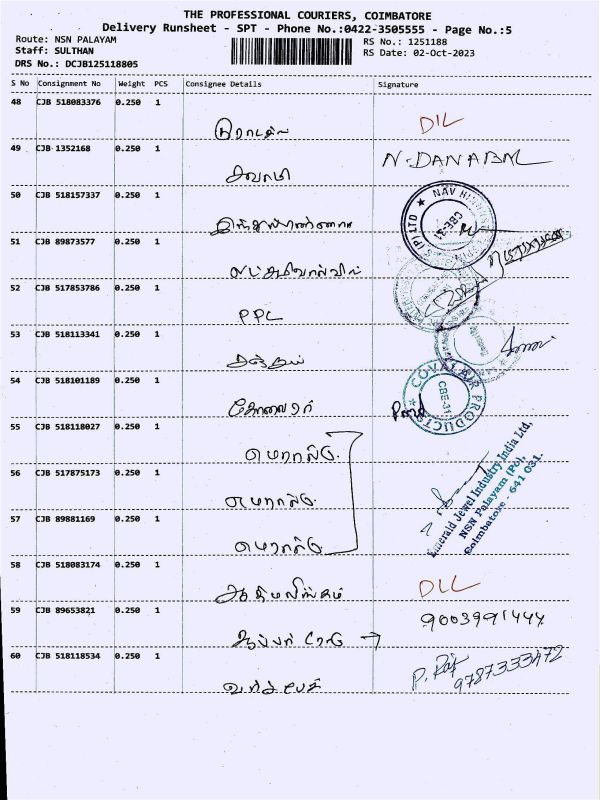 THE PROFESSIONAL COURIERS, COIMBATORE
Delivery Runsheet - SPT - Phone No.:0422-3505555 - Page No.:5
Route: NSN PALAYAM
RS No.: 1251188
Staff: SULTHAN
RS Date: 02-Oct-2023
DRS No.: DCJB125118805
S No Consignment No Weight PCS Consignee Details Signature
48 CJB 518083376 0.250 1
DIL
49 CJB 1352168 0.250 1
N. DANABAL
சுவாமி
50 CJB 518157337 0.250 1
NAV
(P) LTD
CBE-31
51 CJB 89873577 0.250 1
52 CJB 517853786 0.250 1
PPL
53 CJB 518113341 0.250 1
54 CJB 518101189 0.250 1
COVAI AIR PRODUCTS
CBE-31
55 CJB 518118027 0.250 1
எமரால்டு
56 CJB 517875173 0.250 1
எமரால்டு
57 CJB 89881169 0.250 1
எமரால்டு
Emerald Jewel Industry India Ltd,
NSN Palayam (Po),
Coimbatore - 641 031.
58 CJB 518083174 0.250 1
ஆதிமூலிங்கம்
DIL
59 CJB 89653821 0.250 1
9003991444
60 CJB 518118534 0.250 1
P. Raj
9787333472